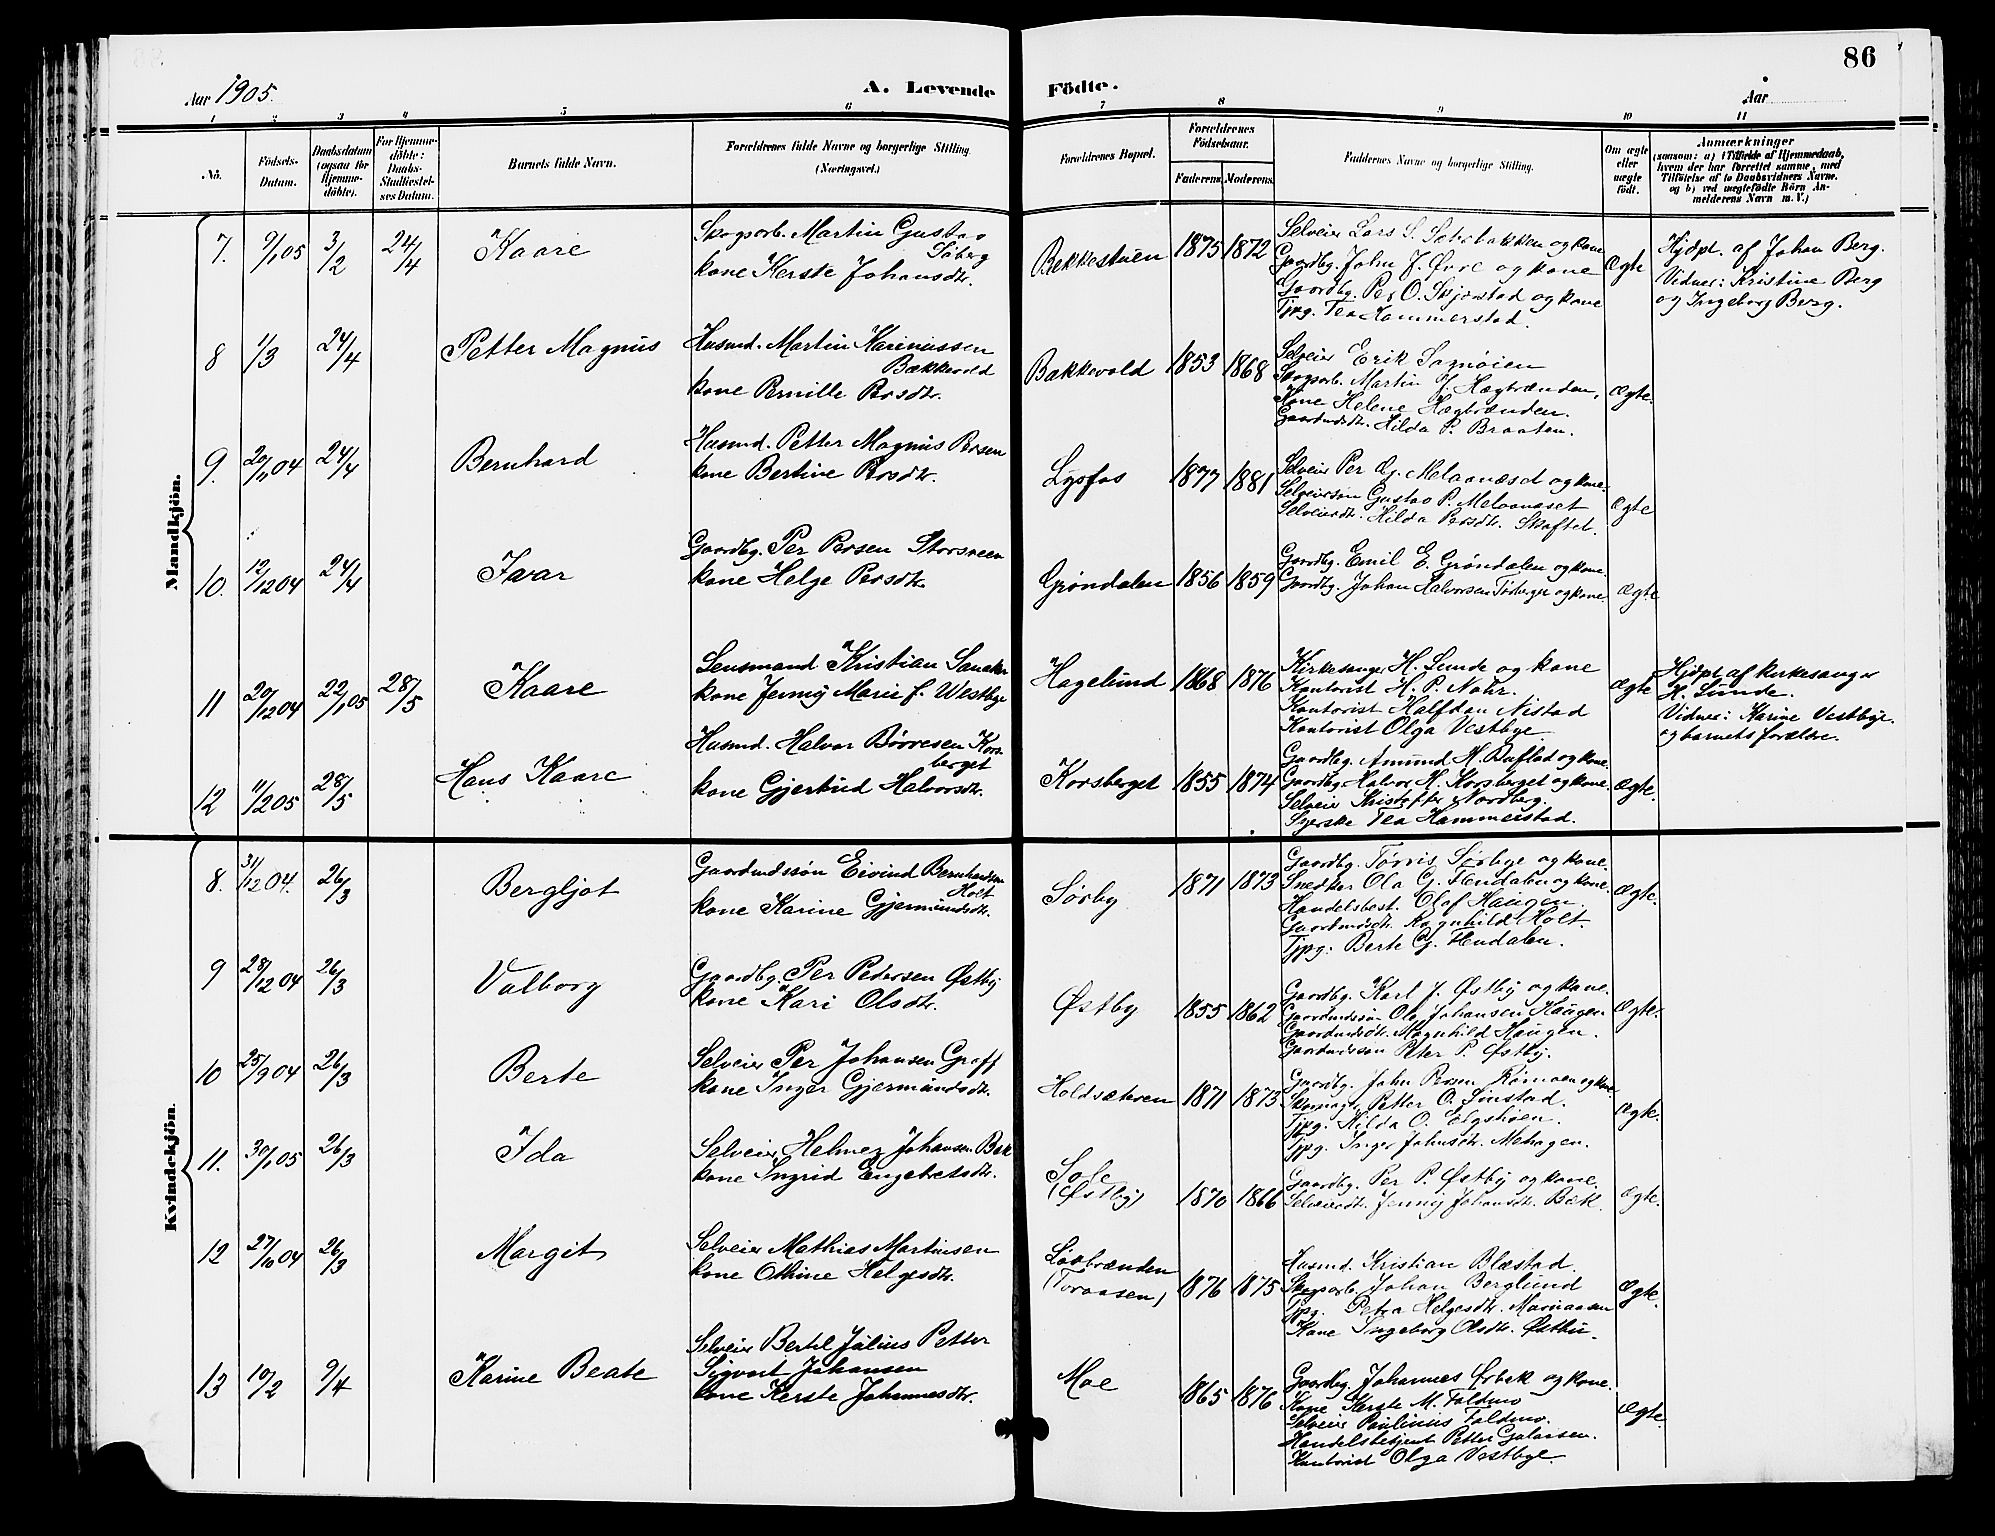 86
Aar 1905.
A. Levende Födte.
Aar
1 2 3 4 5 6 7 8 9 10 11
No.
Födsels-
Datum.
Daabsdatum
(ogsaa for
Hjemme-
döbte).
For Hjemme-
döbte:
Daabs-
Stadfæstel-
ses Datum.
Barnets fulde Navn.
Forældrenes fulde Navne og borgerlige Stilling
(Næringsvei.)
Forældrenes Bopæl.
Forældrenes
Födselsaar.
Faderens. Moderens.
Faddernes Navne og borgerlige Stilling.
Om ægte
eller
uægte
födt.
Anmærkninger
(saasom: a) i Tilfælde af Hjemmedaab,
hvem der har forrettet samme, med
Tilföielse af to Daabsvidners Navne,
og b) ved uægtefödte Börn An-
melderens Navn m. V.)
Mandkjön.
7. 9/1 05 3/2 24/4 Kaare
Skogsarb. Martin Gustav
Söberg
kone Kerste Johansdtr.
Bekkestuen 1875 1872
Selveier Lars S. Sætrebakken og kone
Gaardbg. John J. Øvre og kone
Gaardbg. Per O. Skjærstad og kone
Tjpg. Tea Hammerstad.
Ægte
Hjdpt. af Johan Berg.
Vidner: Kristine Berg
og Ingeborg Berg.
8 1/3 24/4 Petter Magnus
Husmd. Martin Karinussen
Bækkevold
kone Pernille Persdtr.
Bakkevold 1853 1868
Selveier Erik
Skogsarb. Martin H. Hægbrænden,
Kone Helene Hægbrænden.
Gaardmdsdtr. Hilda P. Braaten.
Ægte.
9. 20/11 04 24/4 Bernhard
Husmd. Petter Magnus Persen
kone Bertine Persdtr.
Lysfos 1877 1881
Selveier Per Og. Melaanæset og kone.
Selveiersøn Gustav P. Melaanæset
Selveierdtr. Hilda Persdtr. Skaftet.
Ægte
10. 12/12 04 24/4 Ivar
Gaardbg. Per Persen Storsveen
kone Helge Persdtr.
Grøndalen 1856 1859
Gaardbg. Emil E. Grøndalen og kone.
Gaardbg. Johan Halvorsen Tørberget og kone.
Ægte
11 20/12 04 22/1 05 28/5 Kaare
Lensmand Kristian Sanaker
kone Jenny Marie f. Westbye
Hagelund 1868 1876
Kirkesanger H. Lunde og kone
Kontorist H. P. Nohr.
Kontorist Halfdan Nistad
Kontorist Olga Vestbye
Ægte
Hjdpt af kirkesanger
H. Lunde.
Vidner: Karine Vestbye
og barnets forældre.
12 11/2 05 28/5 Hans Kaare
Husmd. Halvor Børresen Kors-
berget
kone Gjertrud Halvorsdtr.
Korsberget 1855 1874
Gaardbg. Amund H. Buflad og kone.
Gaardbg. Halvor H. Korsberget og kone.
Selveier Kristoffer Nordberg.
Syerske Tea Hammerstad.
Ægte.
Kvindekjön.
8. 31/12 04. 26/3 Bergljot
Gaardmdssøn Eivind Bernhardsen
Holt
kone Karine Gjermundsdtr.
Sørby 1871 1873
Gaardbg. Tørris Sørbye og kone.
Snedker Ola G. Flendalen og kone.
Handelsbest. Olaf Haugen.
Gaardmdsdtr. Ragnhild Holt.
Tjpg. Berte G. Flendalen.
Ægte.
9 28/12 04 26/3 Valborg
Gaardbg. Per Pedersen Østby
kone Kari Olsdtr.
Østby 1855 1862
Gaardbg. Karl J. Østby og kone.
Gaardmdssøn Ole Johansen Haugen
Gaardmdsdtr. Magnhild Haugen.
Gaardmdssøn Peter P. Østby.
Ægte.
10 25/9 04 26/3 Berte
Selveier Per Johansen Graff
kone Inger Gjermundsdtr.
Holdsæteren 1871 1873
Gaardbg. John Persen Rømoen og kone.
Skomager Petter O. Sinstad.
Tjpg. Hilda O. Elgshøen.
Tjpg. Inger Johnsdtr. Mehagen.
Ægte.
11. 30/1 05 26/3 Ida
Selveier Helmer Johansen Bæk
kone Ingrid Engebretsdtr.
(Østby) 1870 1866
Gaardbg. Per P. Østby og kone.
Selveierdtr. Jenny Johansdtr. Bæk.
Ægte.
12 27/10 04 26/3 Margit
Selveier Mathias Martinsen
kone Othine Helgesdtr.
Løvbrænden
(Toraasen) 1876 1875
Husmd. Kristian Blæstad.
Skogsarb. Johan Berglund
Tjpg. Petra Helgesdtr. Mariaasen
Kone Ingeborg Olsdtr. Østby.
Ægte.
13 10/2 9/4 Karine Beate
Selveier Bertel Julius Petter
Sigvart Johansen
kone Kerste Johannesdtr.
Moe 1865 1876
Gaardbg. Johannes Ørbæk og kone.
Kone Kerste M. Foldmo
Selveier Paulinus Foldmo.
Handelsbetjent Petter Galaasen.
Kontorist Olga Vestbye.
Ægte.